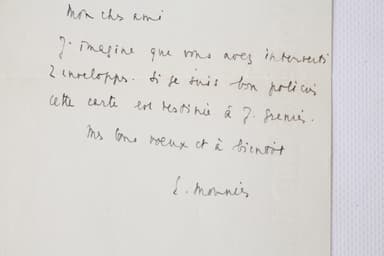 Mon cher ami
J'imagine que vous avez interverti
2 enveloppes. Si je suis bon policier
cette carte est destinée à J. Grenier.
Mes bons voeux et à bientôt
E. Mounier